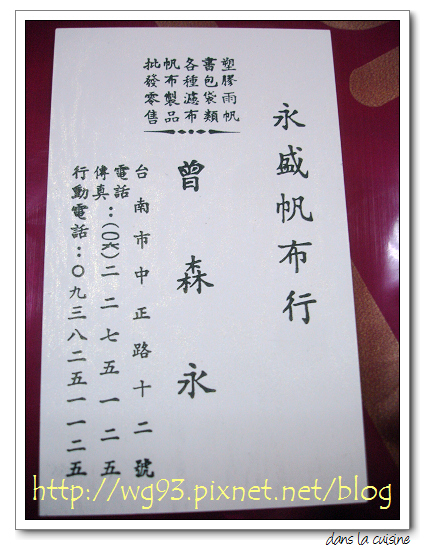 永盛帆布行
塑膠雨帆
書包袋類
各種濾布
帆布製品
批發零售
曾森永
台南市中正路十二號
電話：(〇六)二二七五一二五
傳真
行動電話：〇九三八二五一一二五
http://wg93.pixnet.net/blog
dans la cuisine